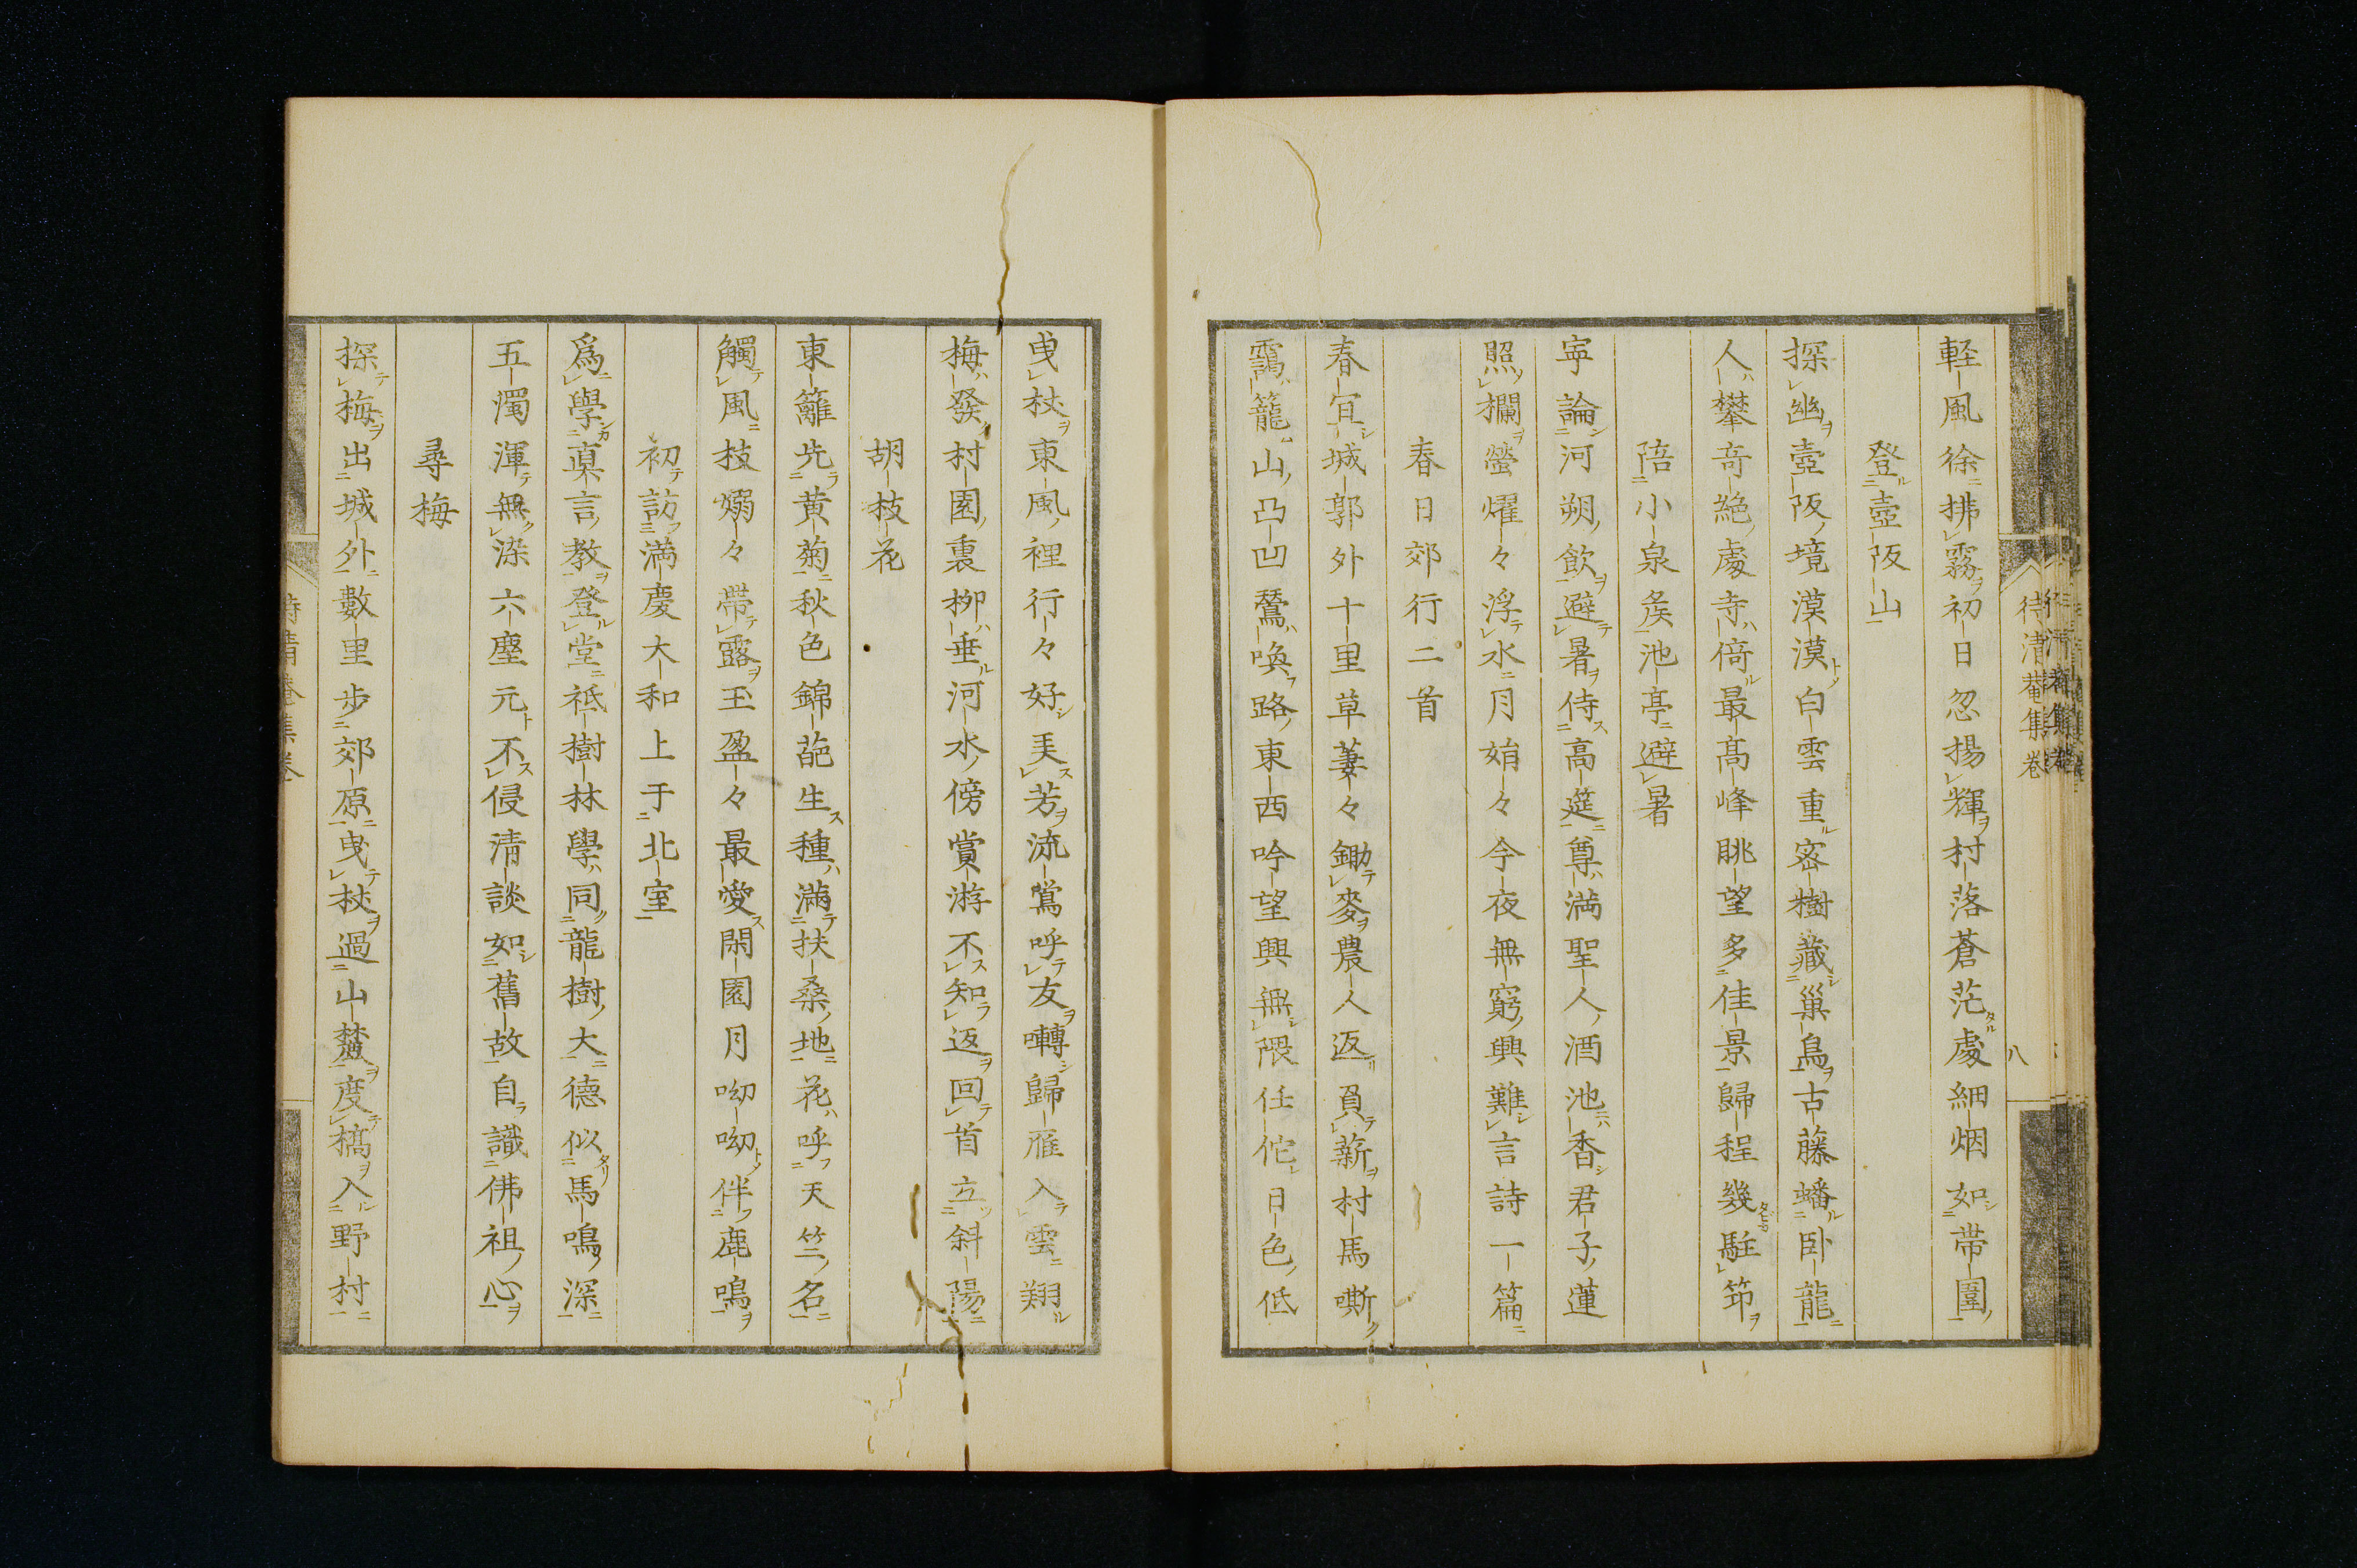 待清菴集卷
八
軽風徐拂霧初日忽揚輝村落蒼茫處細烟如帶圍
登壺阪山
探幽壺阪境漠漠白雲重密樹藏巢鳥古藤蟠卧龍
人攀奇絶處寺倚最高峰眺望多佳景歸程幾駐筇
陪小泉矦池亭避暑
寕論河朔飲避暑侍高筵尊満聖人酒池香君子蓮
照欄螢燿々浮水月娟々今夜無窮興難言詩一篇
春日郊行二首
春宜城郭外十里草萋々鋤麥農人返負薪村馬嘶
靄籠山凸凹鶯喚路東西吟望興無隈任佗日色低
曳杖東風裡行々好羙芳流鶯呼友囀歸雁入雲翔
梅發村園裏栁垂河水傍賞游不知返回首立斜陽
胡枝花
東籬先黄菊秋色錦葩生種満扶桑地花呼天竺名
觸風枝嫋々帶露玉盈々最愛閑園月呦呦伴鹿鳴
初訪満慶大和上于北室
爲學真言教登堂祗樹林學同龍樹大德似馬鳴深
五濁渾無染六塵元不侵清談如舊故自識佛祖心
尋梅
探梅出城外數里步郊原曳杖過山麓度橋入野村
待清菴集卷